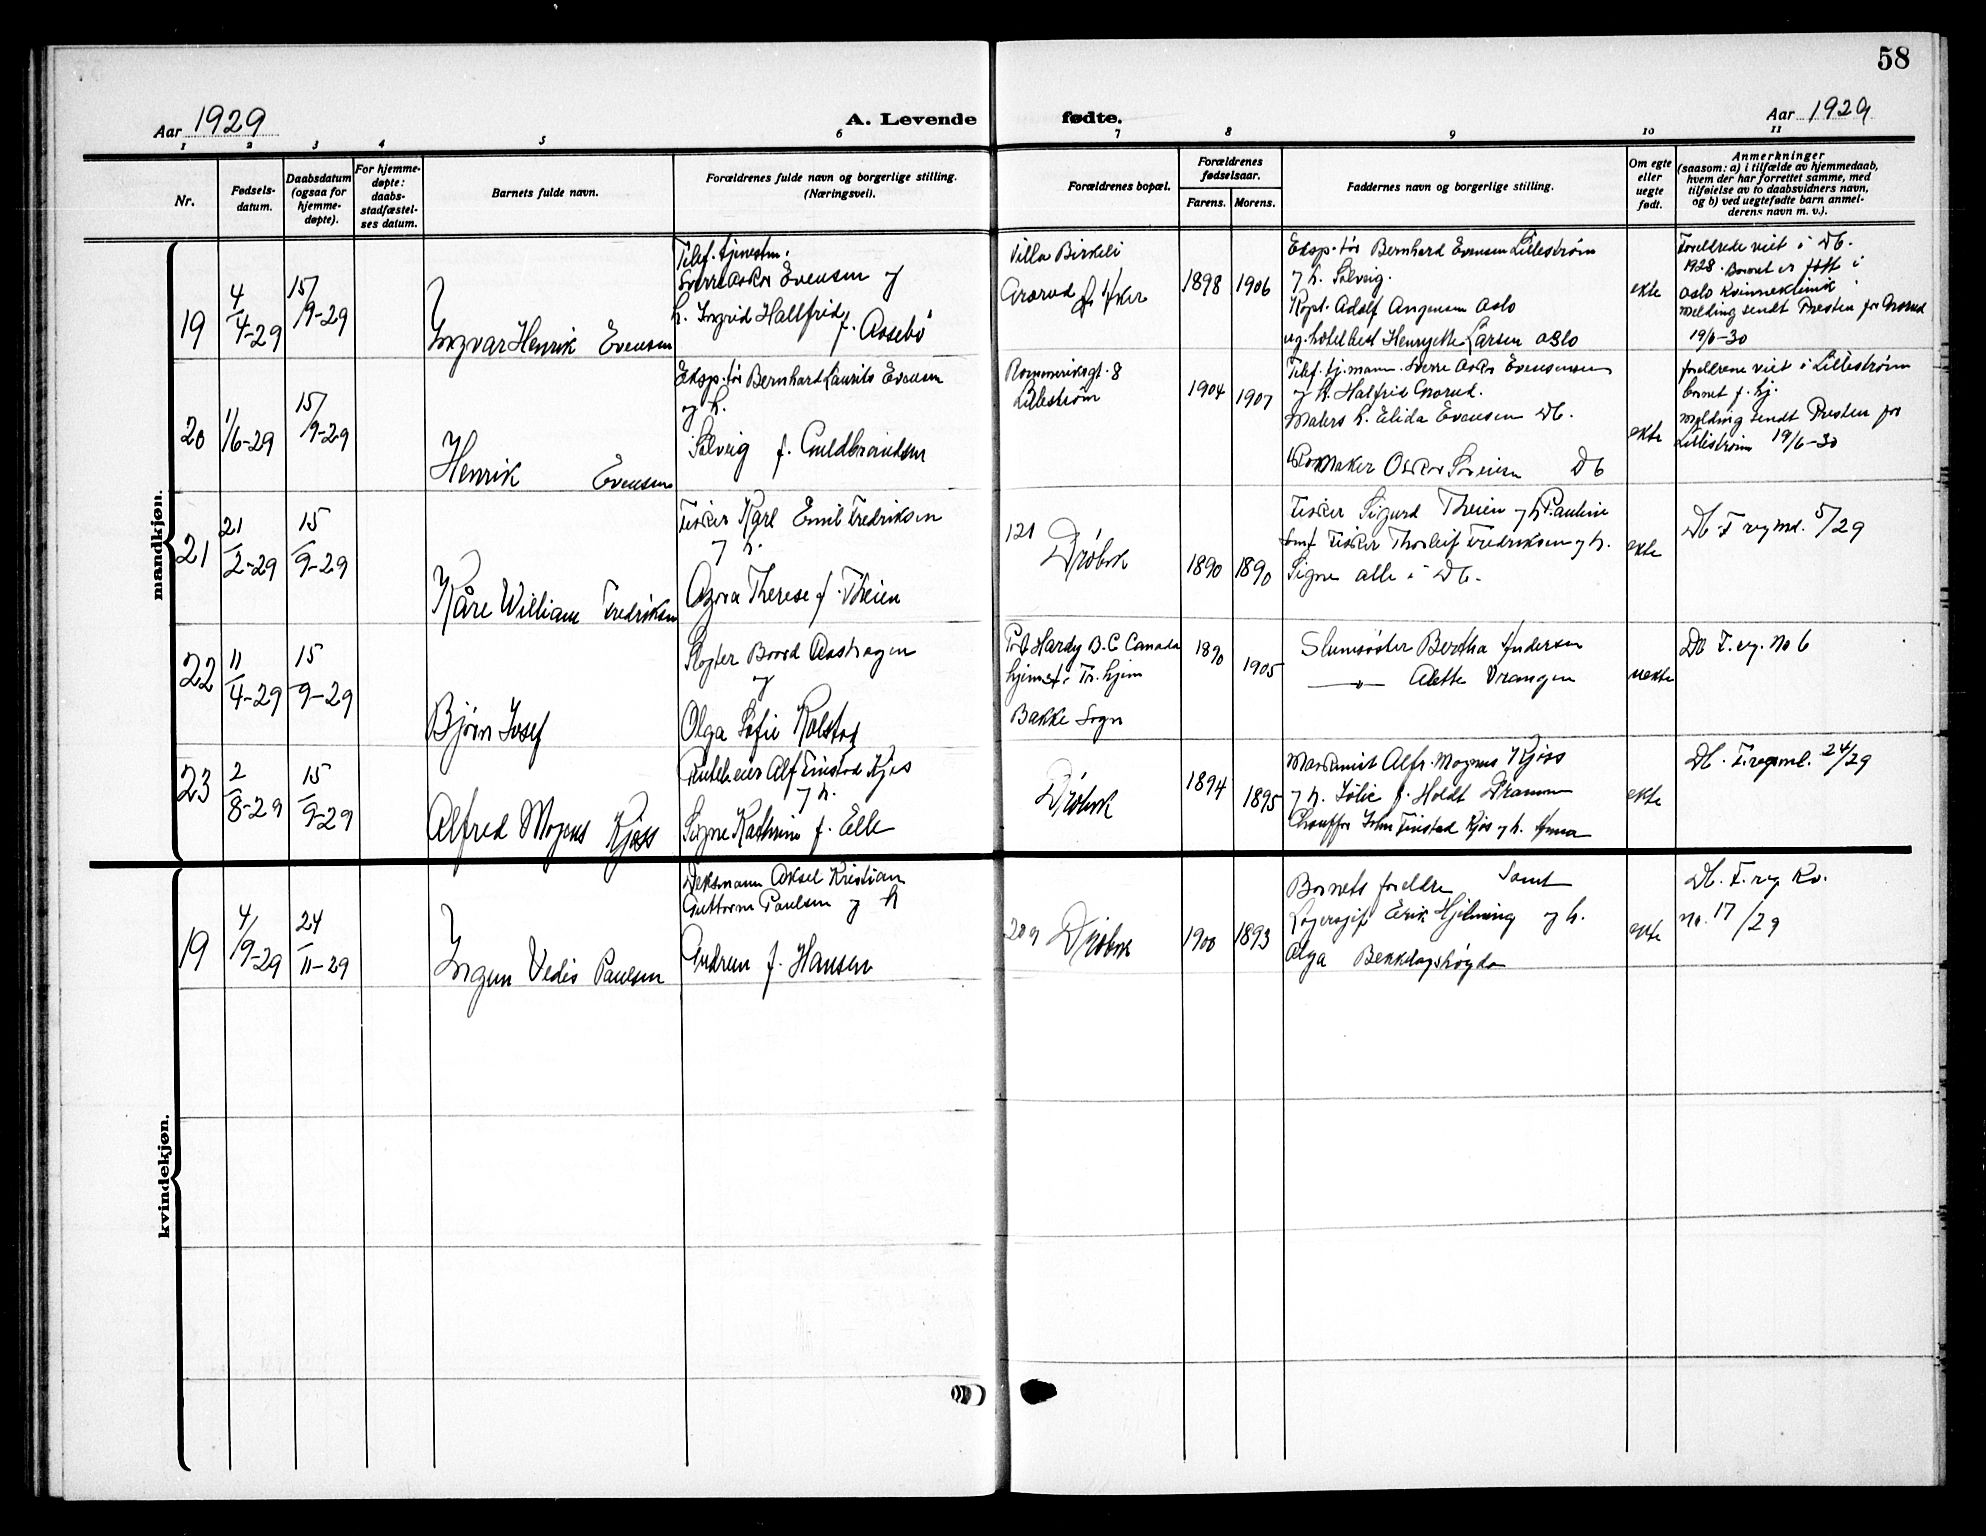 58
Aar 1929
A. Levende
fødte.
Aar 1929
1 2 3 4 5 6 7 8 9 10 11
Nr.
Fødsels-
datum.
Daabsdatum
(ogsaa for
hjemme-
døpte).
For hjemme-
døpte:
daabs-
stadfæstel-
ses datum.
Barnets fulde navn.
Forældrenes fulde navn og borgerlige stilling.
(Næringsvei).
Forældrenes bopæl.
Forældrenes
fødselsaar.
Farens. Morens.
Faddernes navn og borgerlige stilling.
Om egte
eller
uegte
født.
Anmerkninger
(saasom: a) i tilfælde av hjemmedaab,
hvem der har forrettet samme, med
tilføielse av to daabsvidners navn,
og b) ved uegtefødte barn anmel-
derens navn m. v.).
mandkjøn.
19
4/4-29
15/9-29
Ingvar Henrik Evensen
Telef. tjenestm.
Sverre Oskar Evensen og
h. Ingrid Hallfrid
f. Aasebö
Villa Birkeli
Grorud p. Aker
1898
1906
Eksp.tör Bernhard Evensen Lilleström
og h. Solveig.
Kapt. Adolf Oslo
Larsen Oslo
ekte
Foreldrene viet i Db.
1928. Barnet er födt i
Oslo Kvinneklinik
Melding sendt Presten for Grorud
19/6-30
20
1/6-29
15/9-29
Henrik Evensen
Eksp.tör Bernhard Laurits Evensen
og h.
Solveig f. Guldbrandsen
Romeriksgt. 8
Lilleström
1904
1907
Telef. tj.mann Sverre Oskar Evensen
og h. Halfrid Grorud.
Malers h. Elida Evensen Db.
Skomaker Oskar Db
ekte
foreldrene viet i Lilleström
barnet f. hj.
Melding sendt Presten for
Lilleström 19/6-30
21
21/2-29
15/9-29
Kåre William Fredriksen
Fisker Karl Emil Fredriksen
og h.
Agna Therese f. Theien
121
Dröbak
1890
1890
Fisker Sigurd Theien og h. Pauline
samt Fisker Thorleif Fredriksen og h.
Signe alle i Db.
ekte
Db F regmd. 5/29
22
11/4-29
15/9-29
Björn Josef
Slagter Aashagen
og
Olga Sofie Kolstad
Port Hardy B.C Canada
hjemst. Fr. hjem
Bakke Sogn
1890
1905
Slumsöster Bertha Andersen
—„— Alette Vrangen
uekte
Db F. reg. No 6
23
2/8-29
15/9-29
Alfred Mogens Kjös
Alf Finstad Kjös
og h.
Signe Kathrine f. Elle
Dröbak
1894
1895
Maskinist Alfr. Mogens Kjöss
og h. Julie f. Holdt Drammen
Chauffør John Finstad Kjös og h. Anna
ekte
Db. F. regml. 24/29
kvindekjøn.
19
4/9-29
24/11-29
Ingun Vedis Paulsen
Aksel Kristian
Guttorm Paulsen og h
Gudrun f. Hansen
209 Dröbak
1900
1893
Barnets foreldre samt
Erik Hjelming og h.
Olga Bekkelagshögda
ekte
Db. F. reg Kv.
No. 17/29